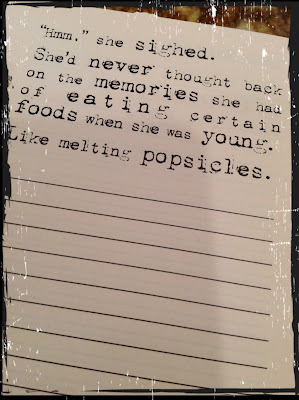 "Hmm." she sighed.
She'd never thought back
on the memories she had
of eating certain
foods when she was young.
Like melting popsicles.